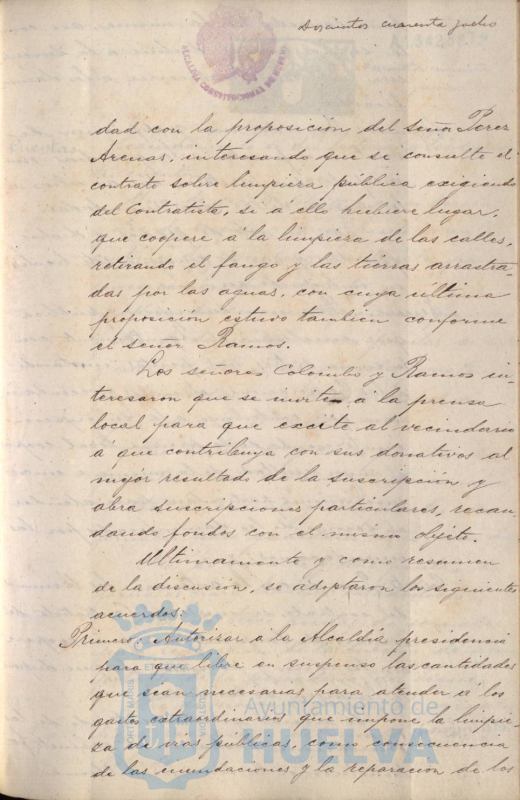 Doscientos cuarenta y ocho
ALCALDIA CONSTITUCIONAL DE HUELVA
dad con la proposición del señor Perez
Arenas, interesando que se consulte el
contrato sobre limpieza pública exigiendo
del Contratista, si á ello hubiere lugar,
que coopere á la limpieza de las calles,
retirando el fango y las tierras arrastra-
das por las aguas, con cuya última
proposición estuvo tambien conforme
el señor Ramos.
Los señores Colombo y Ramos in-
teresaron que se invite á la prensa
local para que excite al vecindario
á que contribuya con sus donativos al
mejor resultado de la suscripción y
abra suscripciones particulares, recau-
dando fondos con el mismo objeto.
Ultimamente y como resumen
de la discusión, se adoptaron los siguientes
acuerdos:
Primero: Autorizar á la Alcaldía presidencia
para que libre en suspenso las cantidades
que sean necesarias para atender á los
gastos extraordinarios que impone la limpie-
za de vias públicas, como consecuencia
de las inundaciones y la reparacion de los
Ayuntamiento de
HUELVA